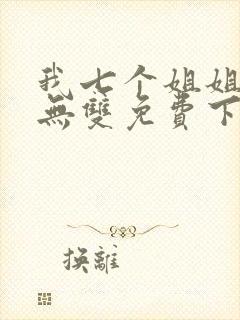 我七个姐姐
無雙免費下
换離